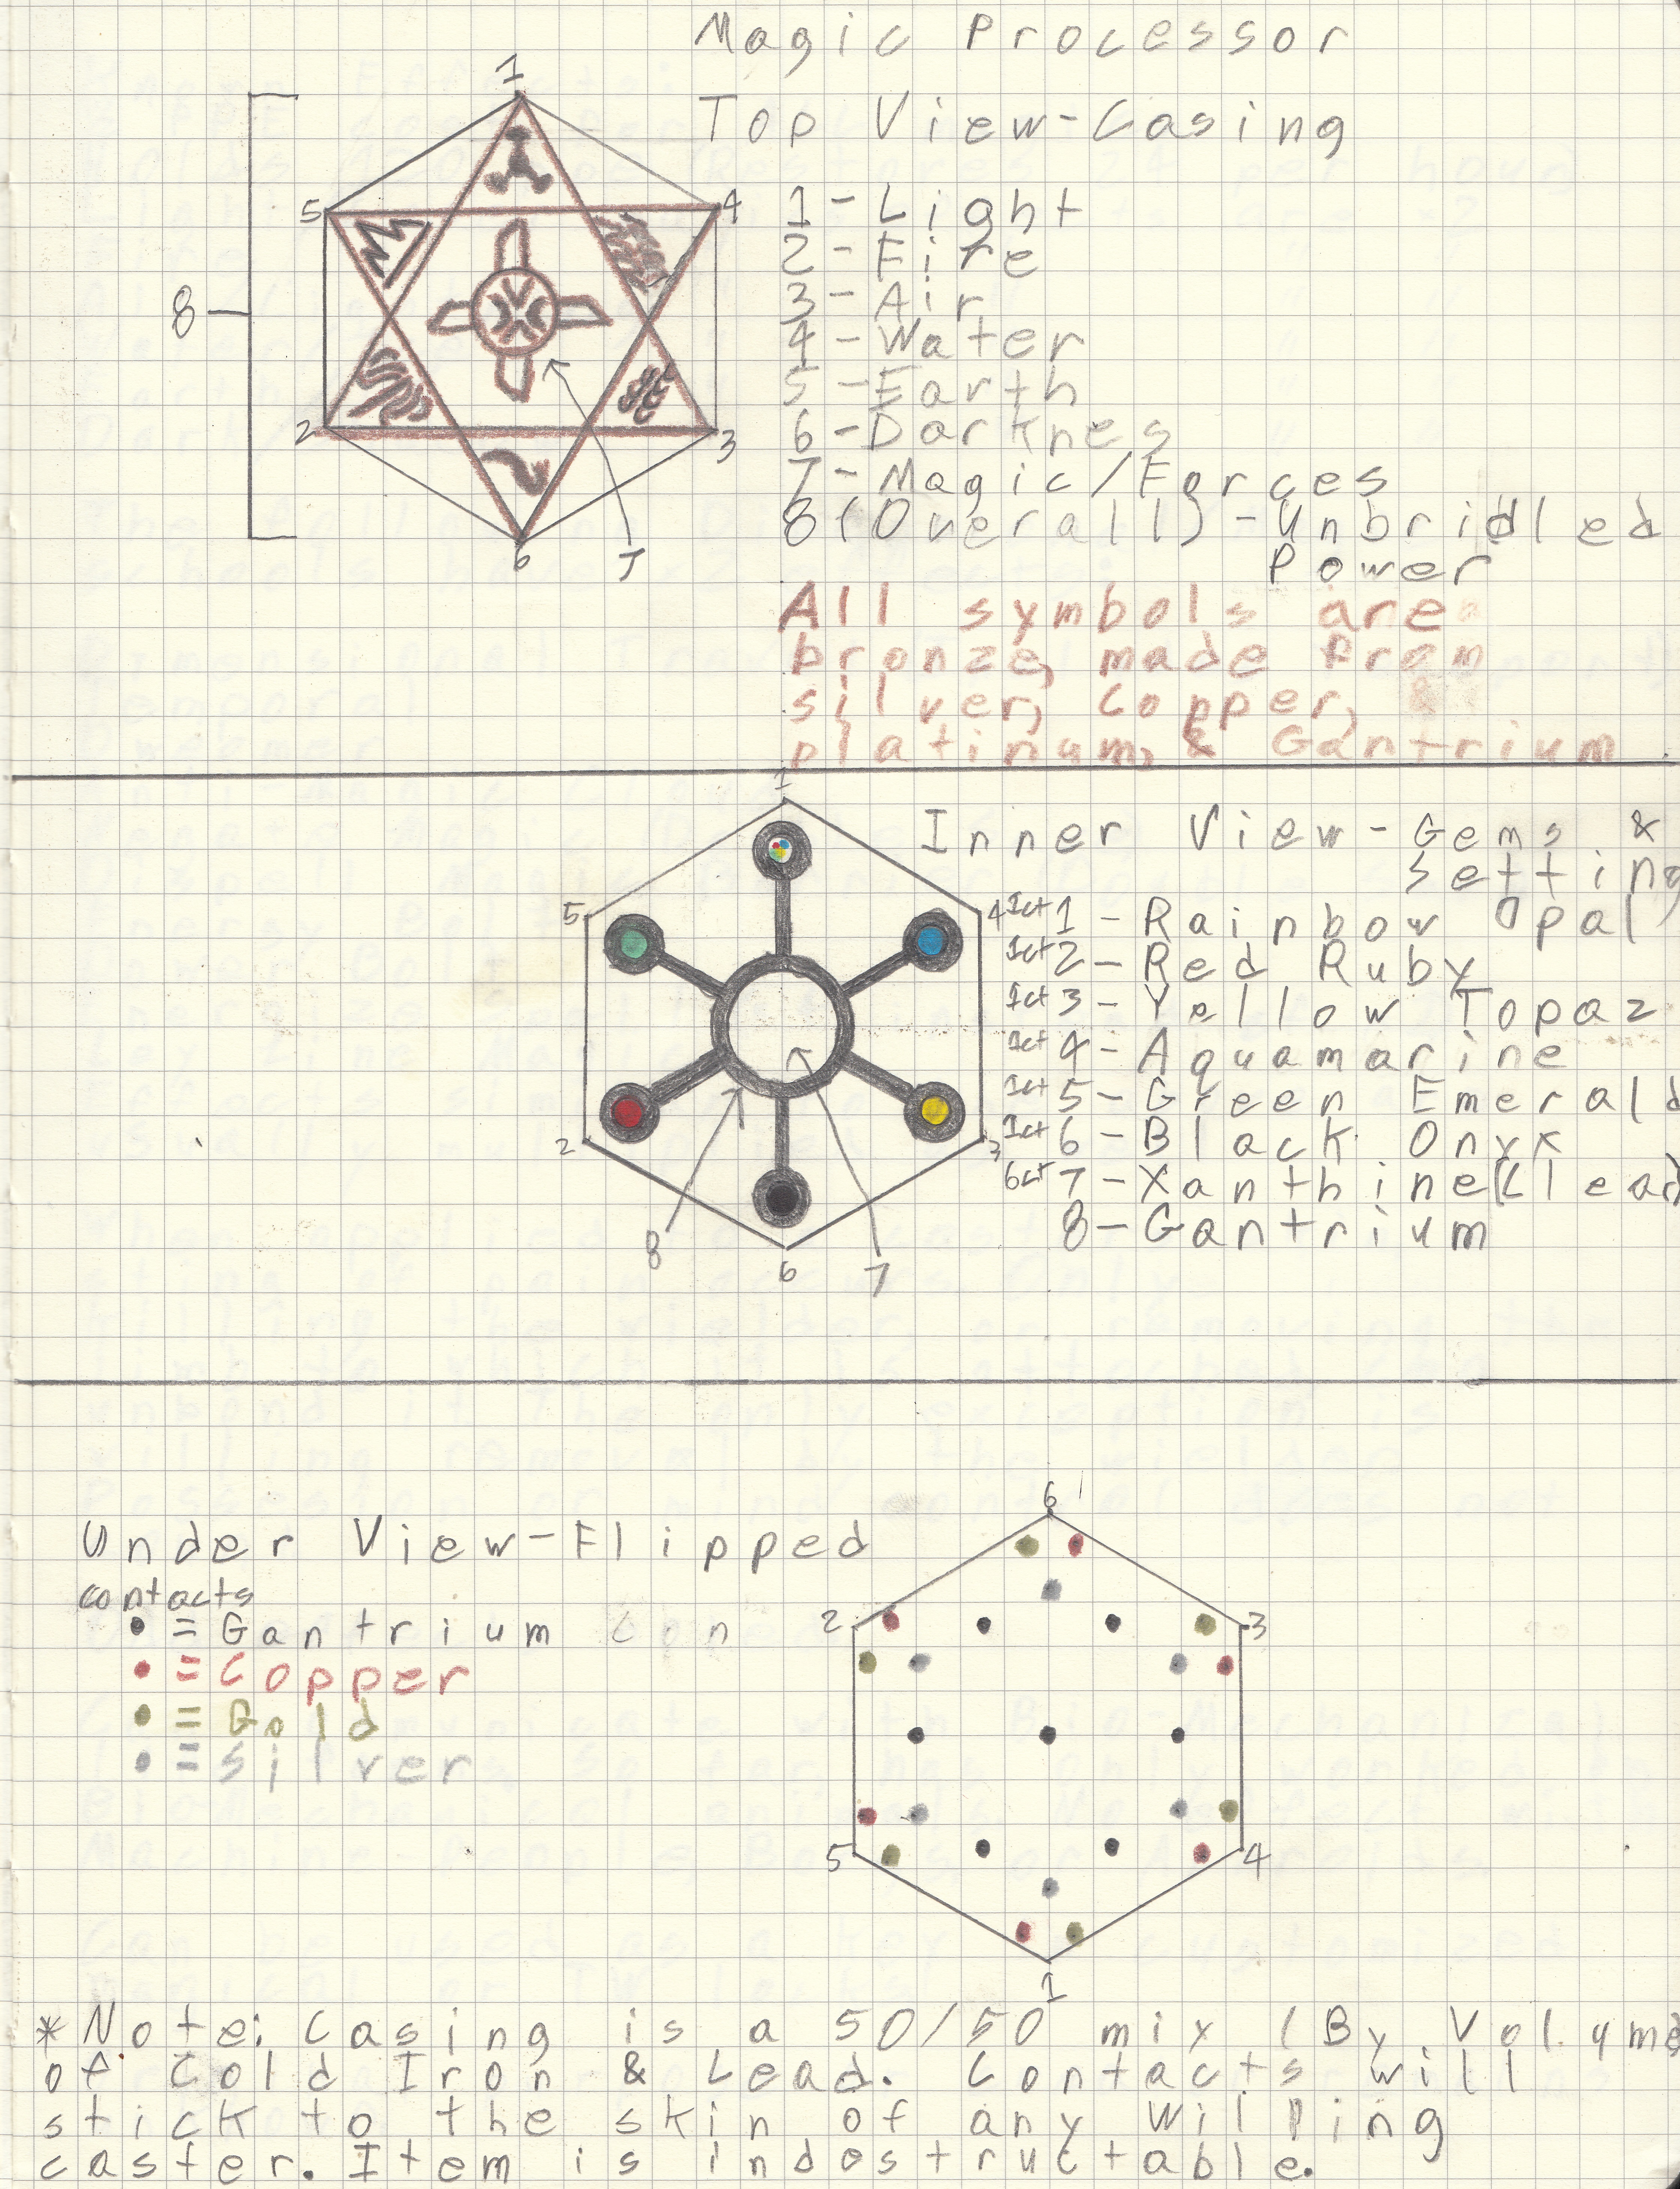 Magic Processor
Top View-Casing
1
5
4
8
2
3
6
7
1-Light
2-Fire
3-Air
4-Water
5-Earth
6-Darknes
7-Magic/Forces
8(Overall)-Unbridled
Power
All symbols are
bronze, made from
silver, copper,
platinum, & Gantrium
1
5
4
2
3
8
6
7
Inner View-Gems &
Setting
1ct 1-Rainbow Opal
1ct 2-Red Ruby
1ct 3-Yellow Topaz
1ct 4-Aquamarine
1ct 5-Green Emerald
1ct 6-Black Onyx
6ct 7-Xanthine(Clear)
8-Gantrium
Under View-Flipped
contacts
• = Gantrium Con
• = Copper
• = Gold
• = silver
6
2
3
5
4
1
*Note: Casing is a 50/50 mix (By Volume)
of Cold Iron & Lead. Contacts will
stick to the skin of any willing
caster. Item is indestructable.